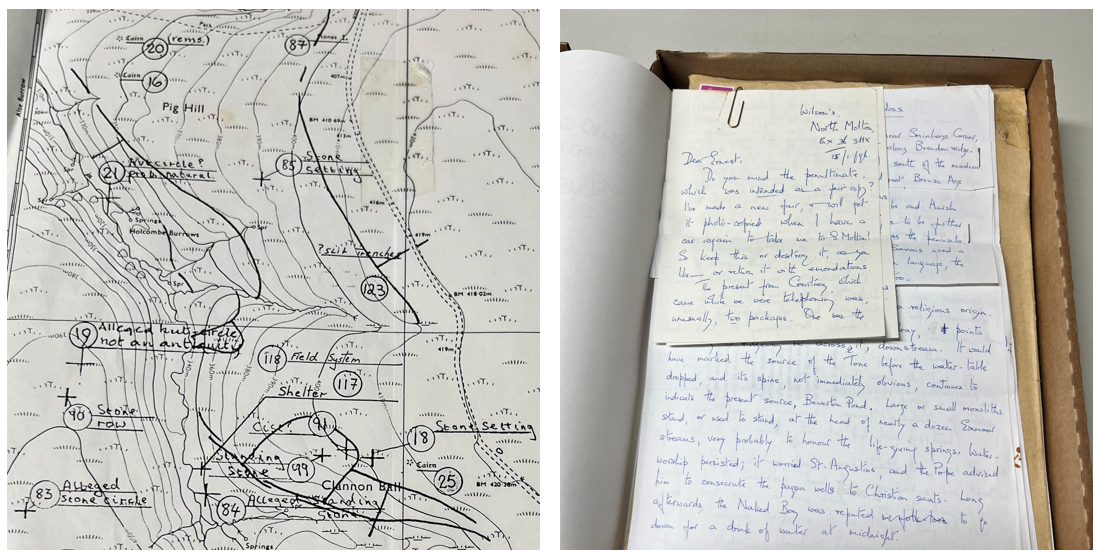 Path
Cairn
20
(rems.)
87
Stones
407m
Cairn
16
Pig Hill
Alse Barrow
BM 410 69m
413m
85
Stone
Setting
21
Hut circle?
prob. natural.
416m
Springs
Spr
Holcombe Burrows
419m
? Slit Trenches
Spr
123
BM 418 02m
19
Alleged hut circle
not an antiquity
118
Field System
419m
117
Shelter
90
Stone
row
Cist?
18
Stone Setting
Standing
Stone
99
Cairn
25
Clannon Ball
BM 420 38m
83
Alleged
stone circle
84
Alleged Standing
Stone
Spr
Springs
Wilson's
North Molton,
EX 36 3HX
15/1/96
Dear Ernest,
Do you mind the penultimate,
which was intended as a fair copy?
I've made a new fair, & will get
it photo-copied when I have a
car again to take me to S. Molton.
So keep this or destroy it, as you
like — or return it with emendations
The present from Courtney which
came while we were telephoning was,
unusually, two packages. One was the
near Sminhays Corner,
along Brendon ridge.
south of the
Bronze Age
and Amish
to be further
the peninsula
used
language, the
too.
a religious origin.
points
across it, downstream. It would
have marked the source of the Tone before the water-table
dropped, and its spine, not immediately obvious, continues to
indicate the present source, Beverton Pond. Large or small monoliths
stand, or used to stand, at the head of nearly a dozen Exmoor
streams, very probably to honour the life-giving springs. Water-
worship persisted; it worried St. Augustine and the Pope advised
him to consecrate the pagan wells to Christian saints. Long
afterwards the Naked Boy was reputed to go
down for a drink of water at midnight.